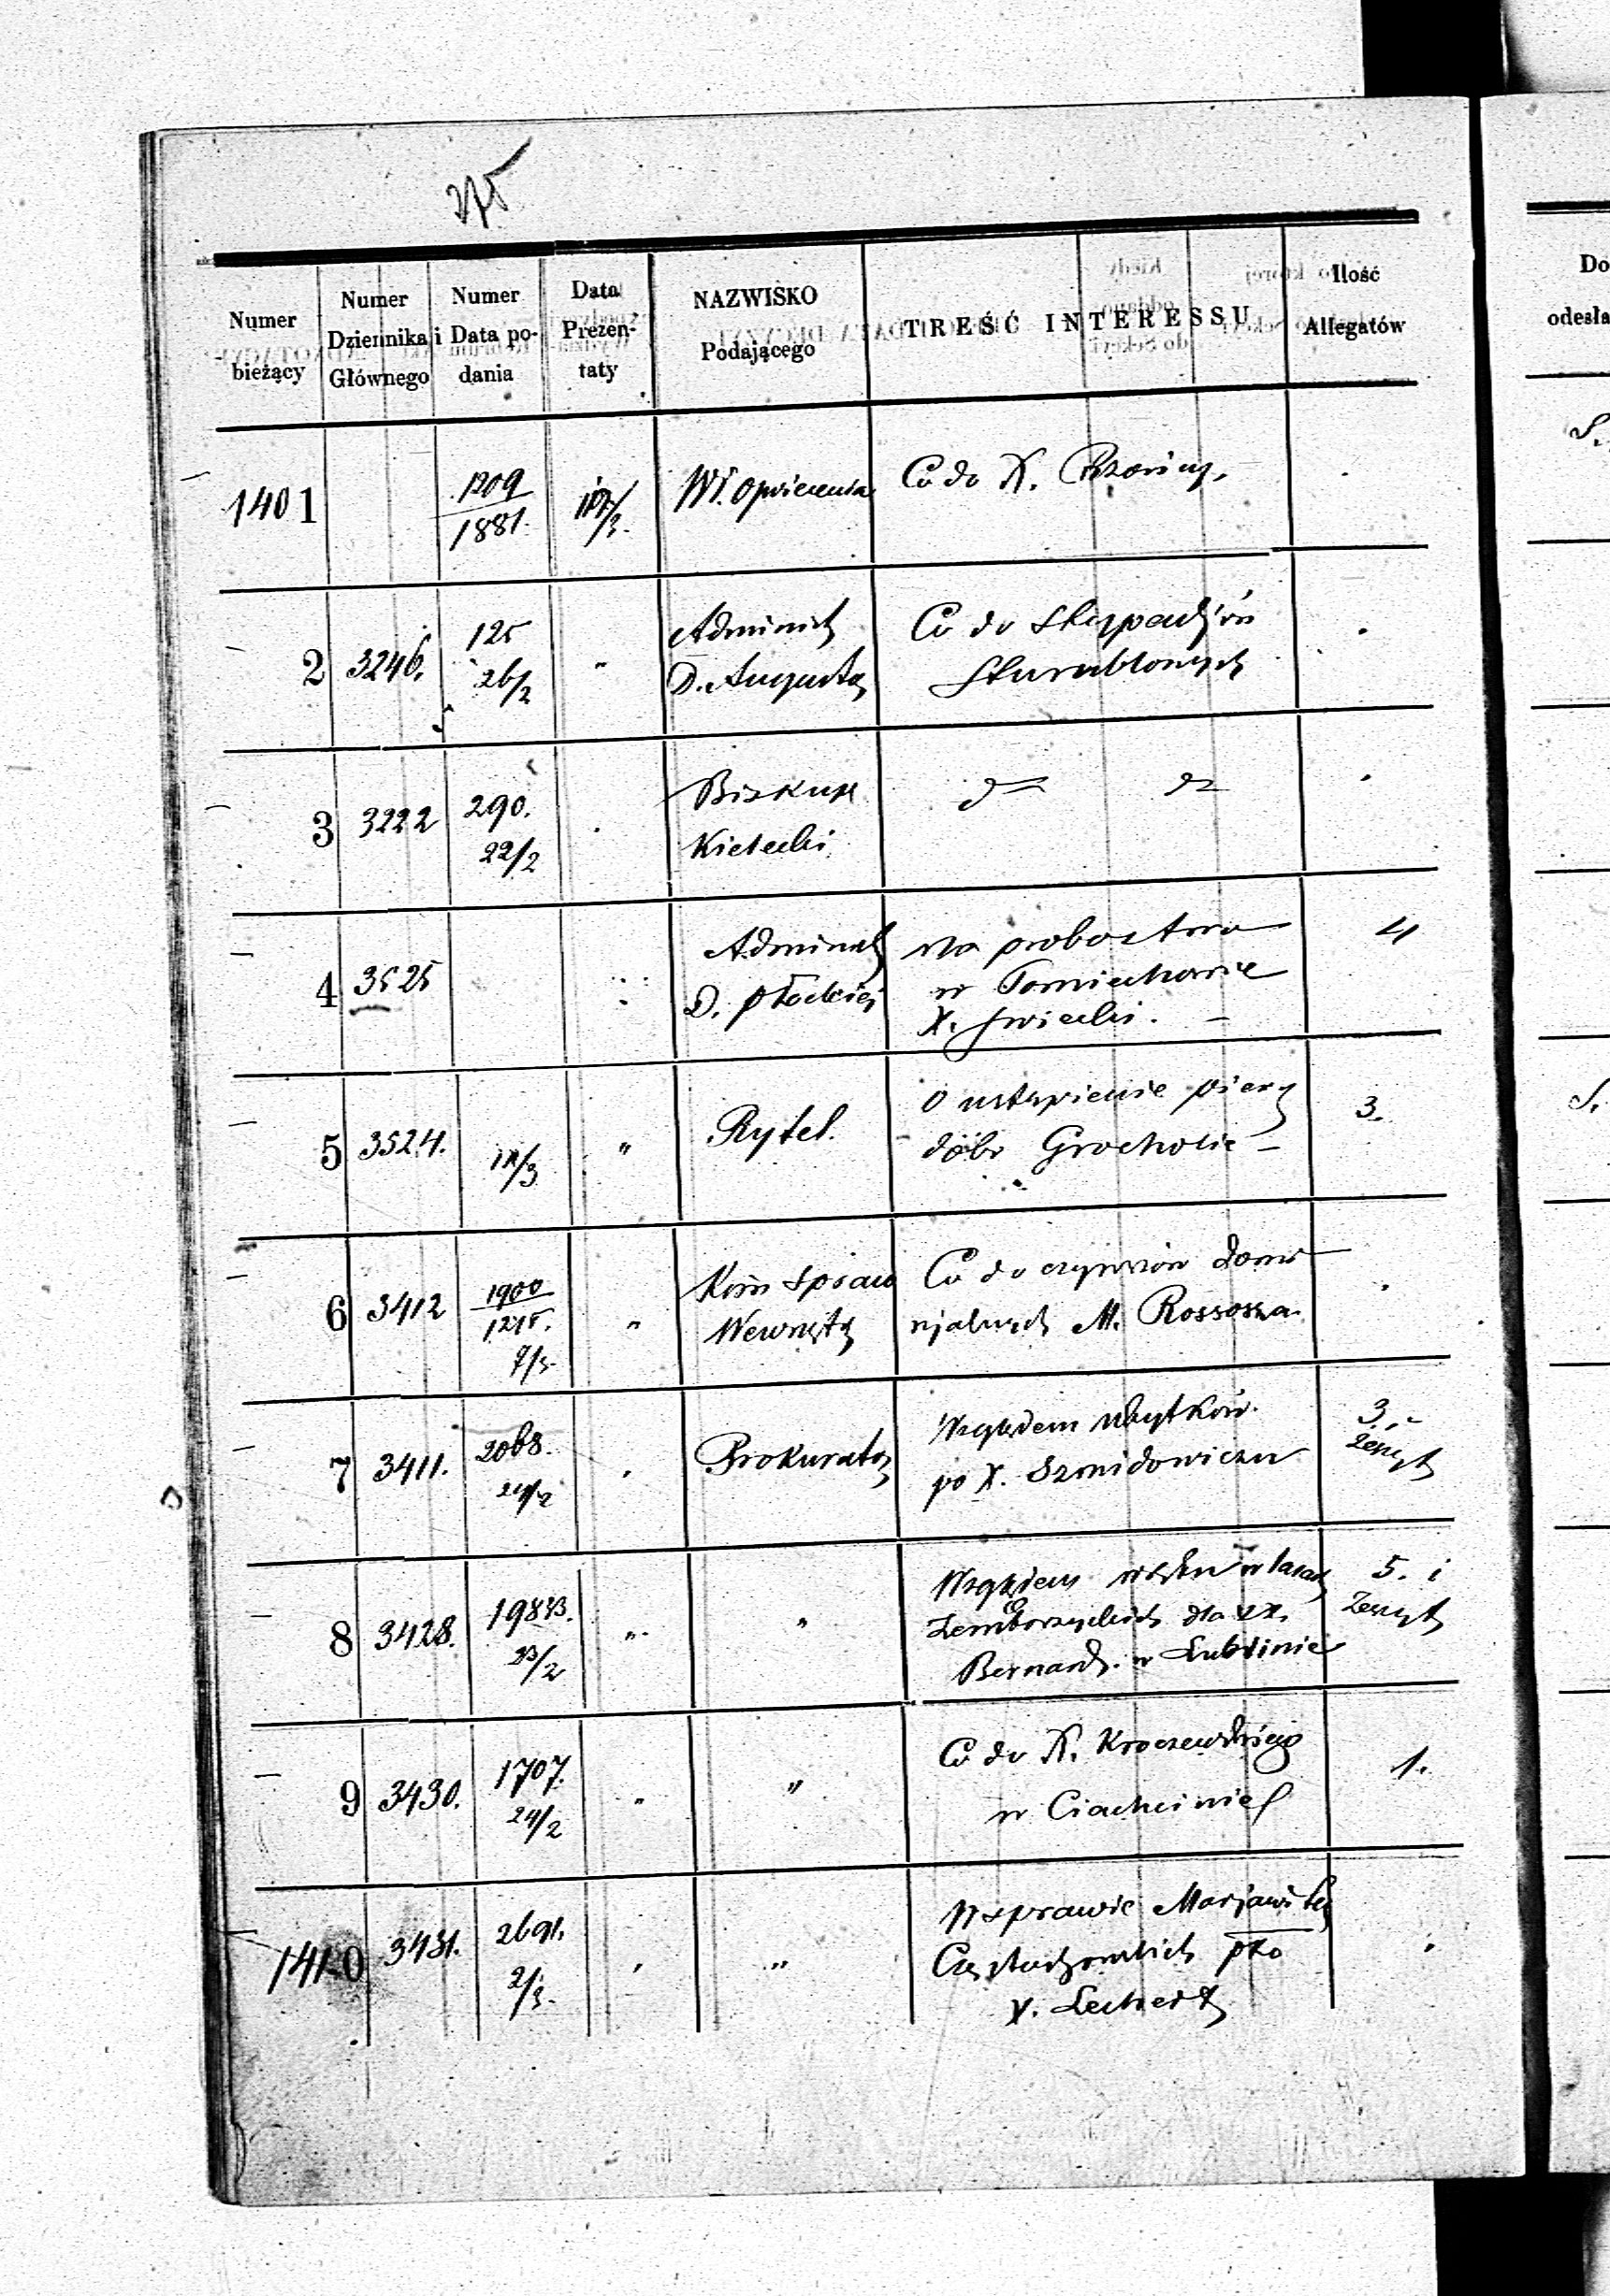 275
Numer bieżący | Numer Dziennika Głównego | Numer i Data podania | Data Prezentaty | NAZWISKO Podającego | TREŚĆ INTERESSU | Ilość Allegatów
1401 | | 1209 / 1881. | /3. | Wł. | Co do X.
2 | 3246. | 125 26/2 | " | Administ
D. Augusto | Co do
3 | 3222 | 290. 22/2 | | Biskup
Kielecki | do do
4 | 3525 | | | Administ
D. Płockiej | na probostwo
w Pomiechowie
X. | 4
5 | 3524. | /3 | " | Rytel. | O ustąpienie pierw
dóbr Grocholic | 3.
6 | 3412 | 1900 / 1215. 7/3. | " | Kom Spraw
Wewnętz | Co do czynszów domi
njalnych M. Rossosza
7 | 3411. | 2068. 24/2 | | Prokurator | Względem ubytków
po X. Szmidowiczu | 3.
Zeszyt
8 | 3428. | 23/2 | " | " | Względem w lasach
Zemborzyckich dla XX.
Bernard. w Lublinie | 5. i
Zeszyt
9 | 3430. | 1707. 24/2 | " | " | Co do X. Kroczewskiego
w Ciachcinie | 1.
1410 | 3431. | 2691. 2/3. | | " | W sprawie Marjawitek
Częstochowskich pko
X. Lechert
Do
odesła
S.
S.